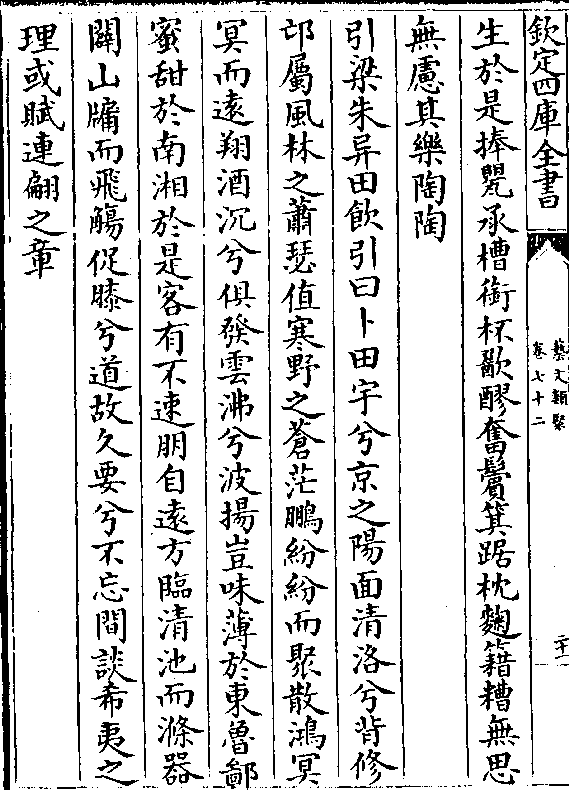 欽定四庫全書
藝文類聚
卷七十二
二十一
生於是捧甖承槽銜杯歠醪奮髯箕踞枕麴籍糟無思
無慮其樂陶陶
引梁朱异田飲引曰卜田宇兮京之陽面清洛兮背修
邙屬風林之蕭瑟值寒野之蒼茫鵬紛紛而聚散鴻冥
冥而遠翔酒沉兮俱發雲沸兮波揚豈味薄於東魯鄙
蜜甜於南湘於是客有不速朋自遠方臨清池而滌器
闢山牖而飛觴促膝兮道故久要兮不忘間談希夷之
理或賦連翩之章